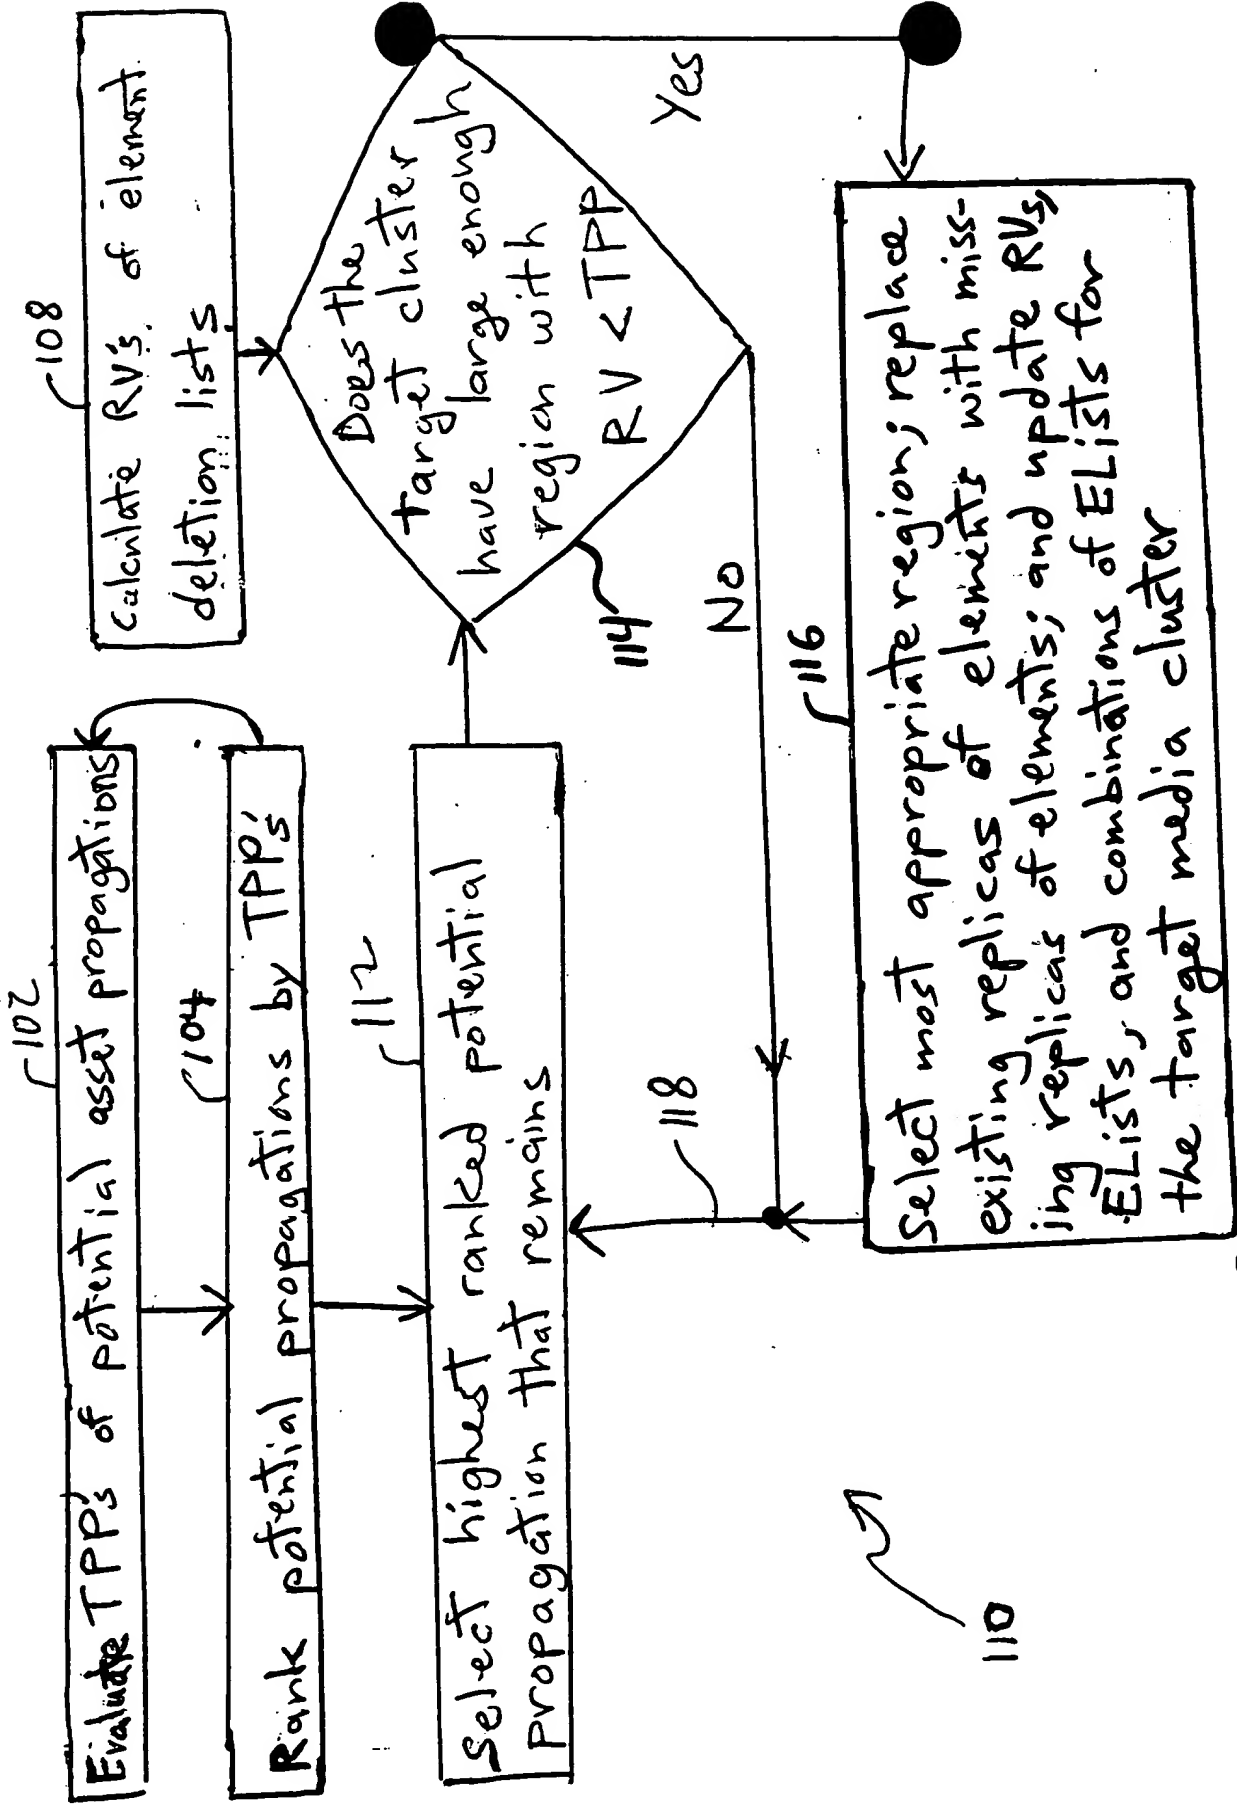 102
Evaluate TPP's of potential asset propagations
104
Rank potential propagations by TPP's
112
Select highest ranked potential
propagation that remains
108
Calculate RV's of element
deletion lists
Does the
target cluster
have large enough
region with
RV < TPP
114
Yes
No
118
116
Select most appropriate region; replace
existing replicas of elements with miss-
ing replicas of elements; and update RVs,
ELists, and combinations of ELists for
the target media cluster
110